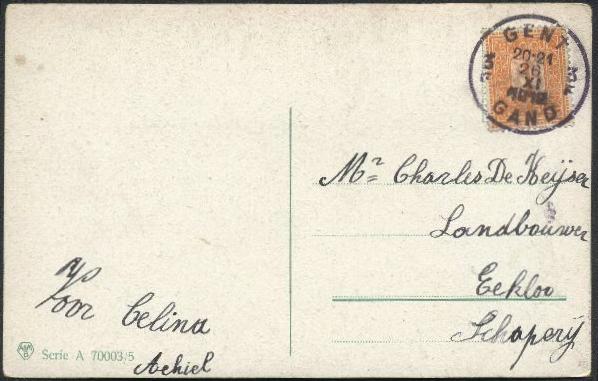 GENT
20-21
26
XI
GAND
Mr Charles De Keÿser
Landbouwer
Eekloo
Schaperÿ
Voor Celina
Achiel
Serie A 70003/5